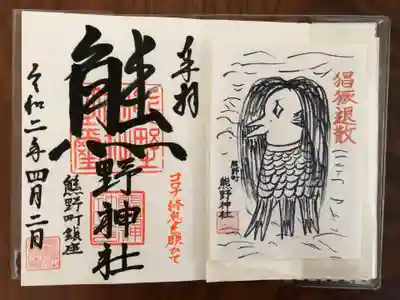 奉拝
熊野神社
コロナ終息を願ひて
熊野町鎮座
令和二年四月二日
猖獗退散
熊野町
熊野神社